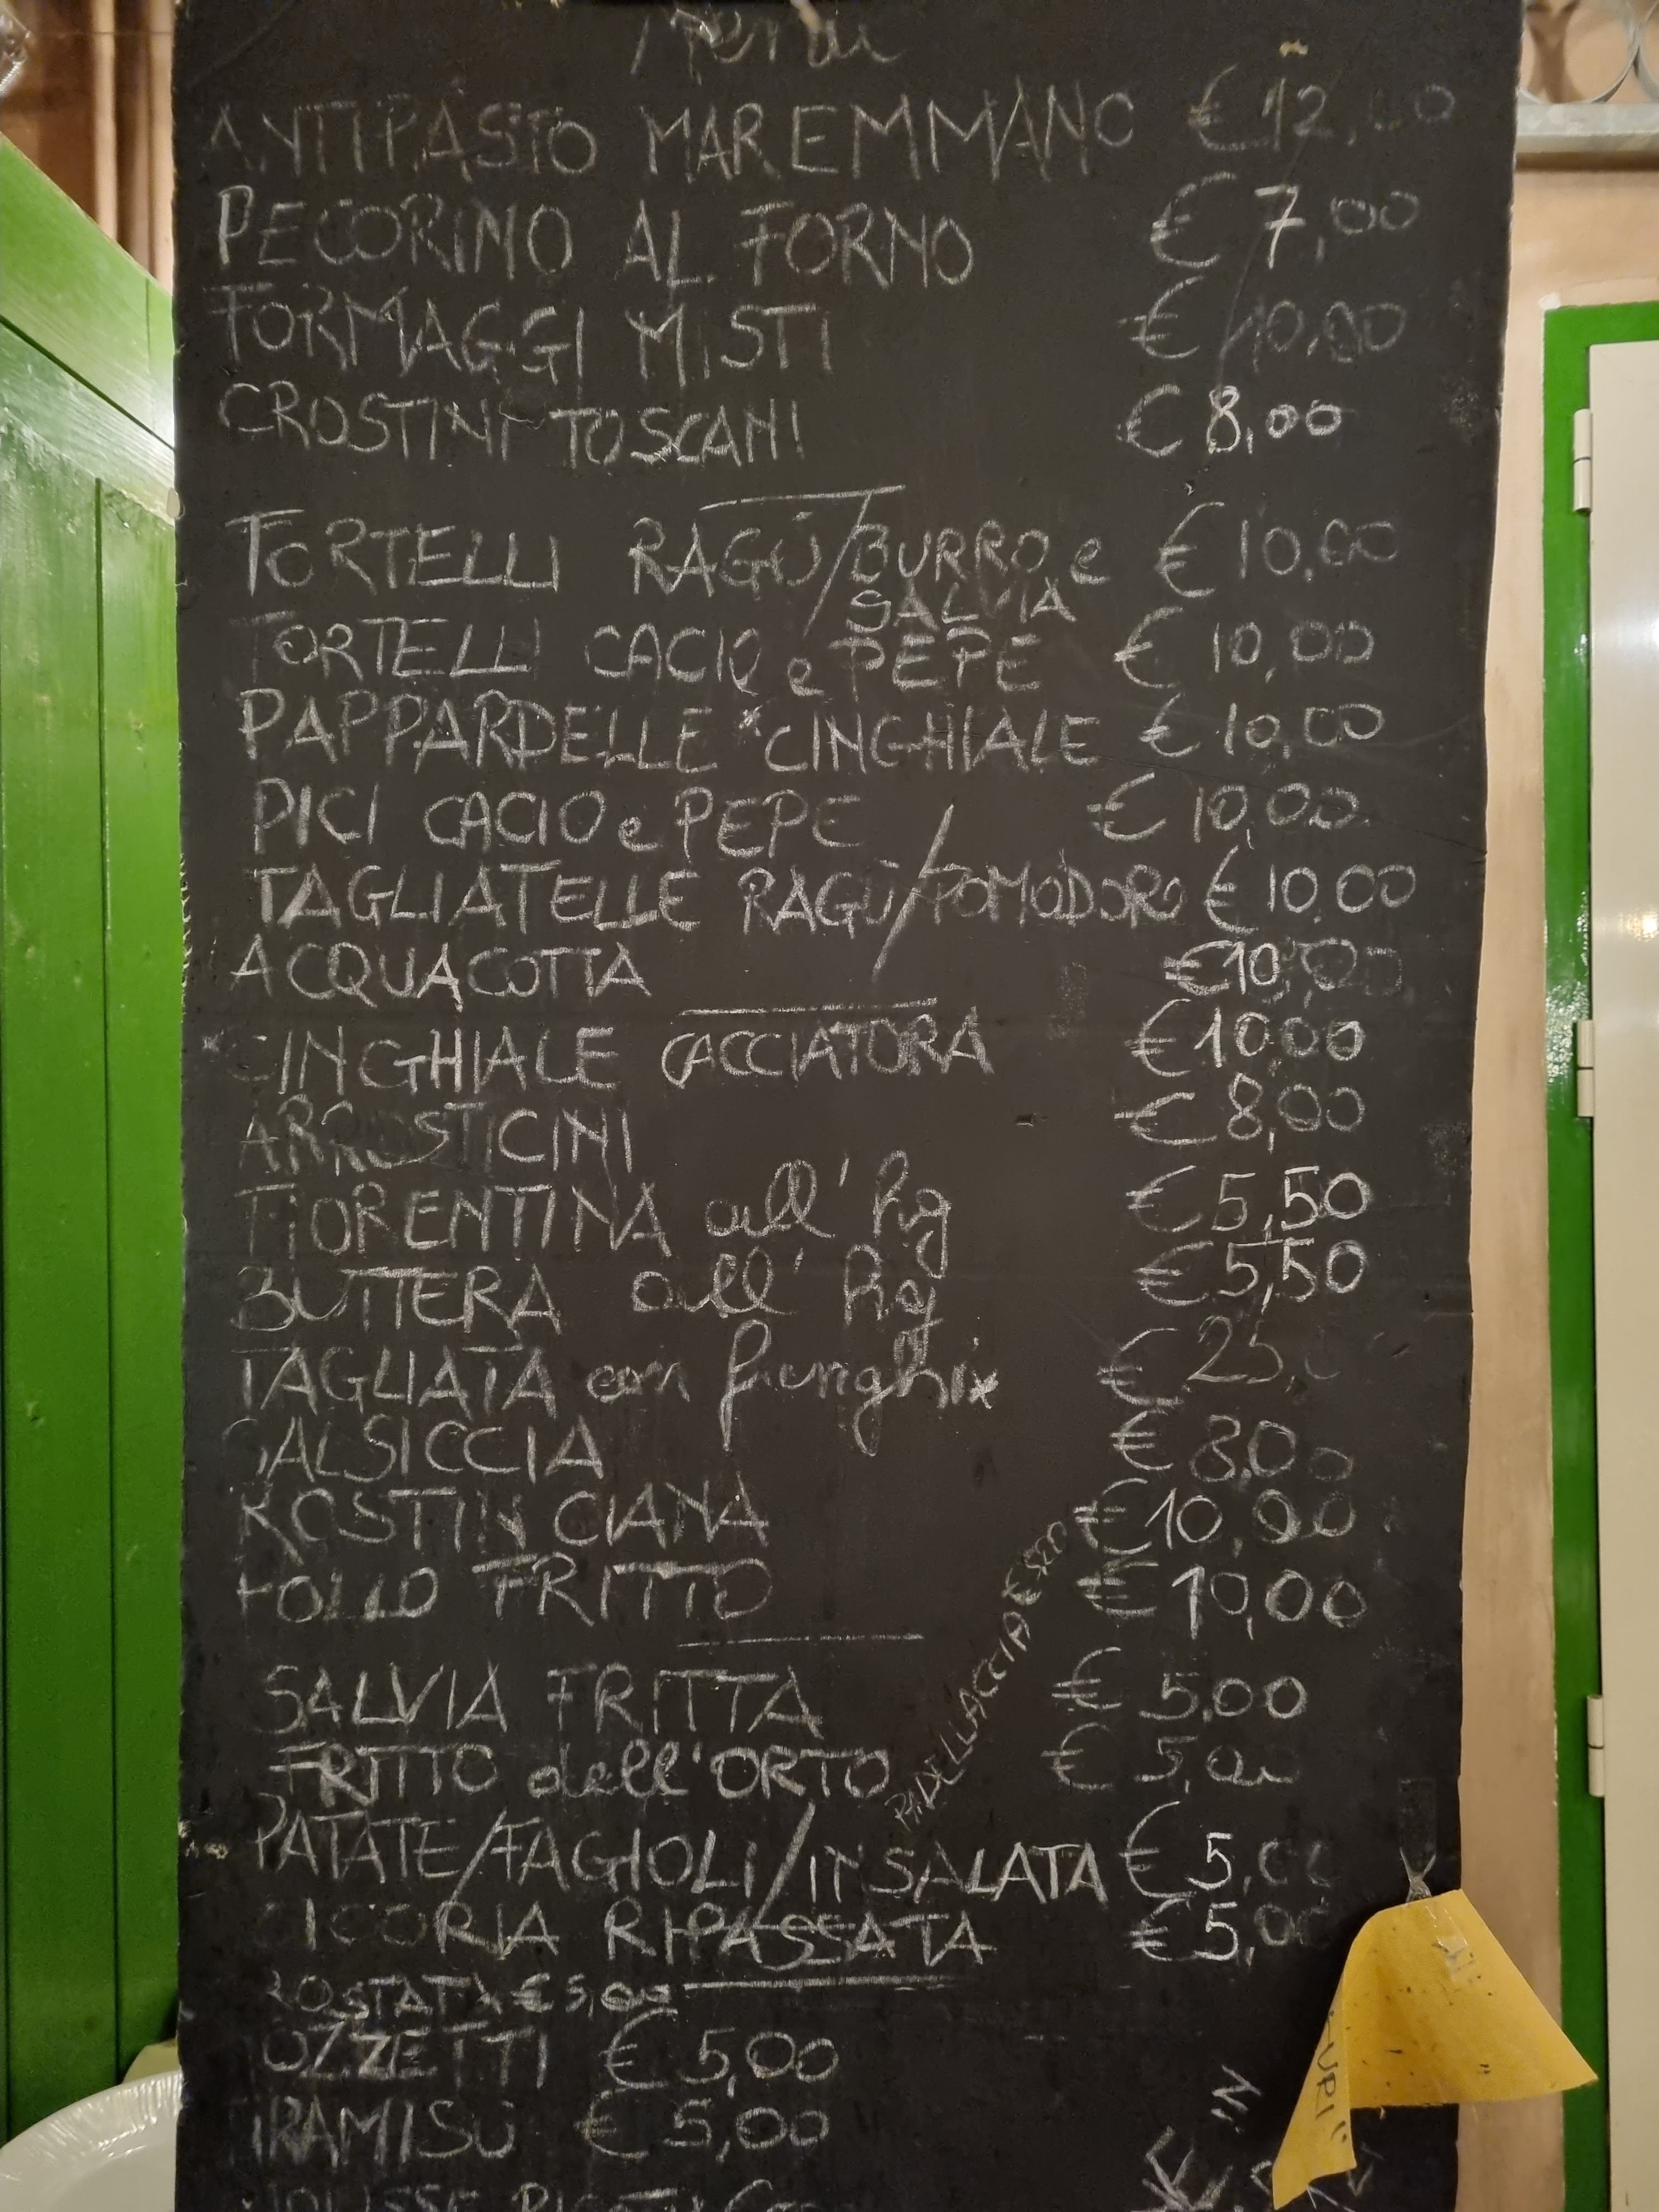 Menu
ANTIPASTO MAREMMANO € 12,00
PECORINO AL FORNO € 7,00
FORMAGGI MISTI € 10,00
CROSTINI TOSCANI € 8,00
TORTELLI RAGÙ/BURRO e € 10,00
SALVIA
TORTELLI CACIO e PEPE € 10,00
PAPPARDELLE *CINGHIALE € 10,00
PICI CACIO e PEPE € 10,00
TAGLIATELLE RAGÙ/POMODORO € 10,00
ACQUACOTTA €10,00
CINGHIALE CACCIATORA €10,00
ARROSTICINI € 8,00
FIORENTINA all'hg € 5,50
BUTTERA all'hg € 5,50
TAGLIATA con funghi* € 25,
SALSICCIA € 8,00
ROSTINCIANA €10,00
POLLO FRITTO € 10,00
PADELLACCIA € 5,00
SALVIA FRITTA € 5,00
FRITTO dell'ORTO € 5,00
PATATE/FAGIOLI/INSALATA € 5,00
CICORIA RIPASSATA € 5,00
ROSTATA € 5,00
OZZETTI € 5,00
TIRAMISÙ € 5,00